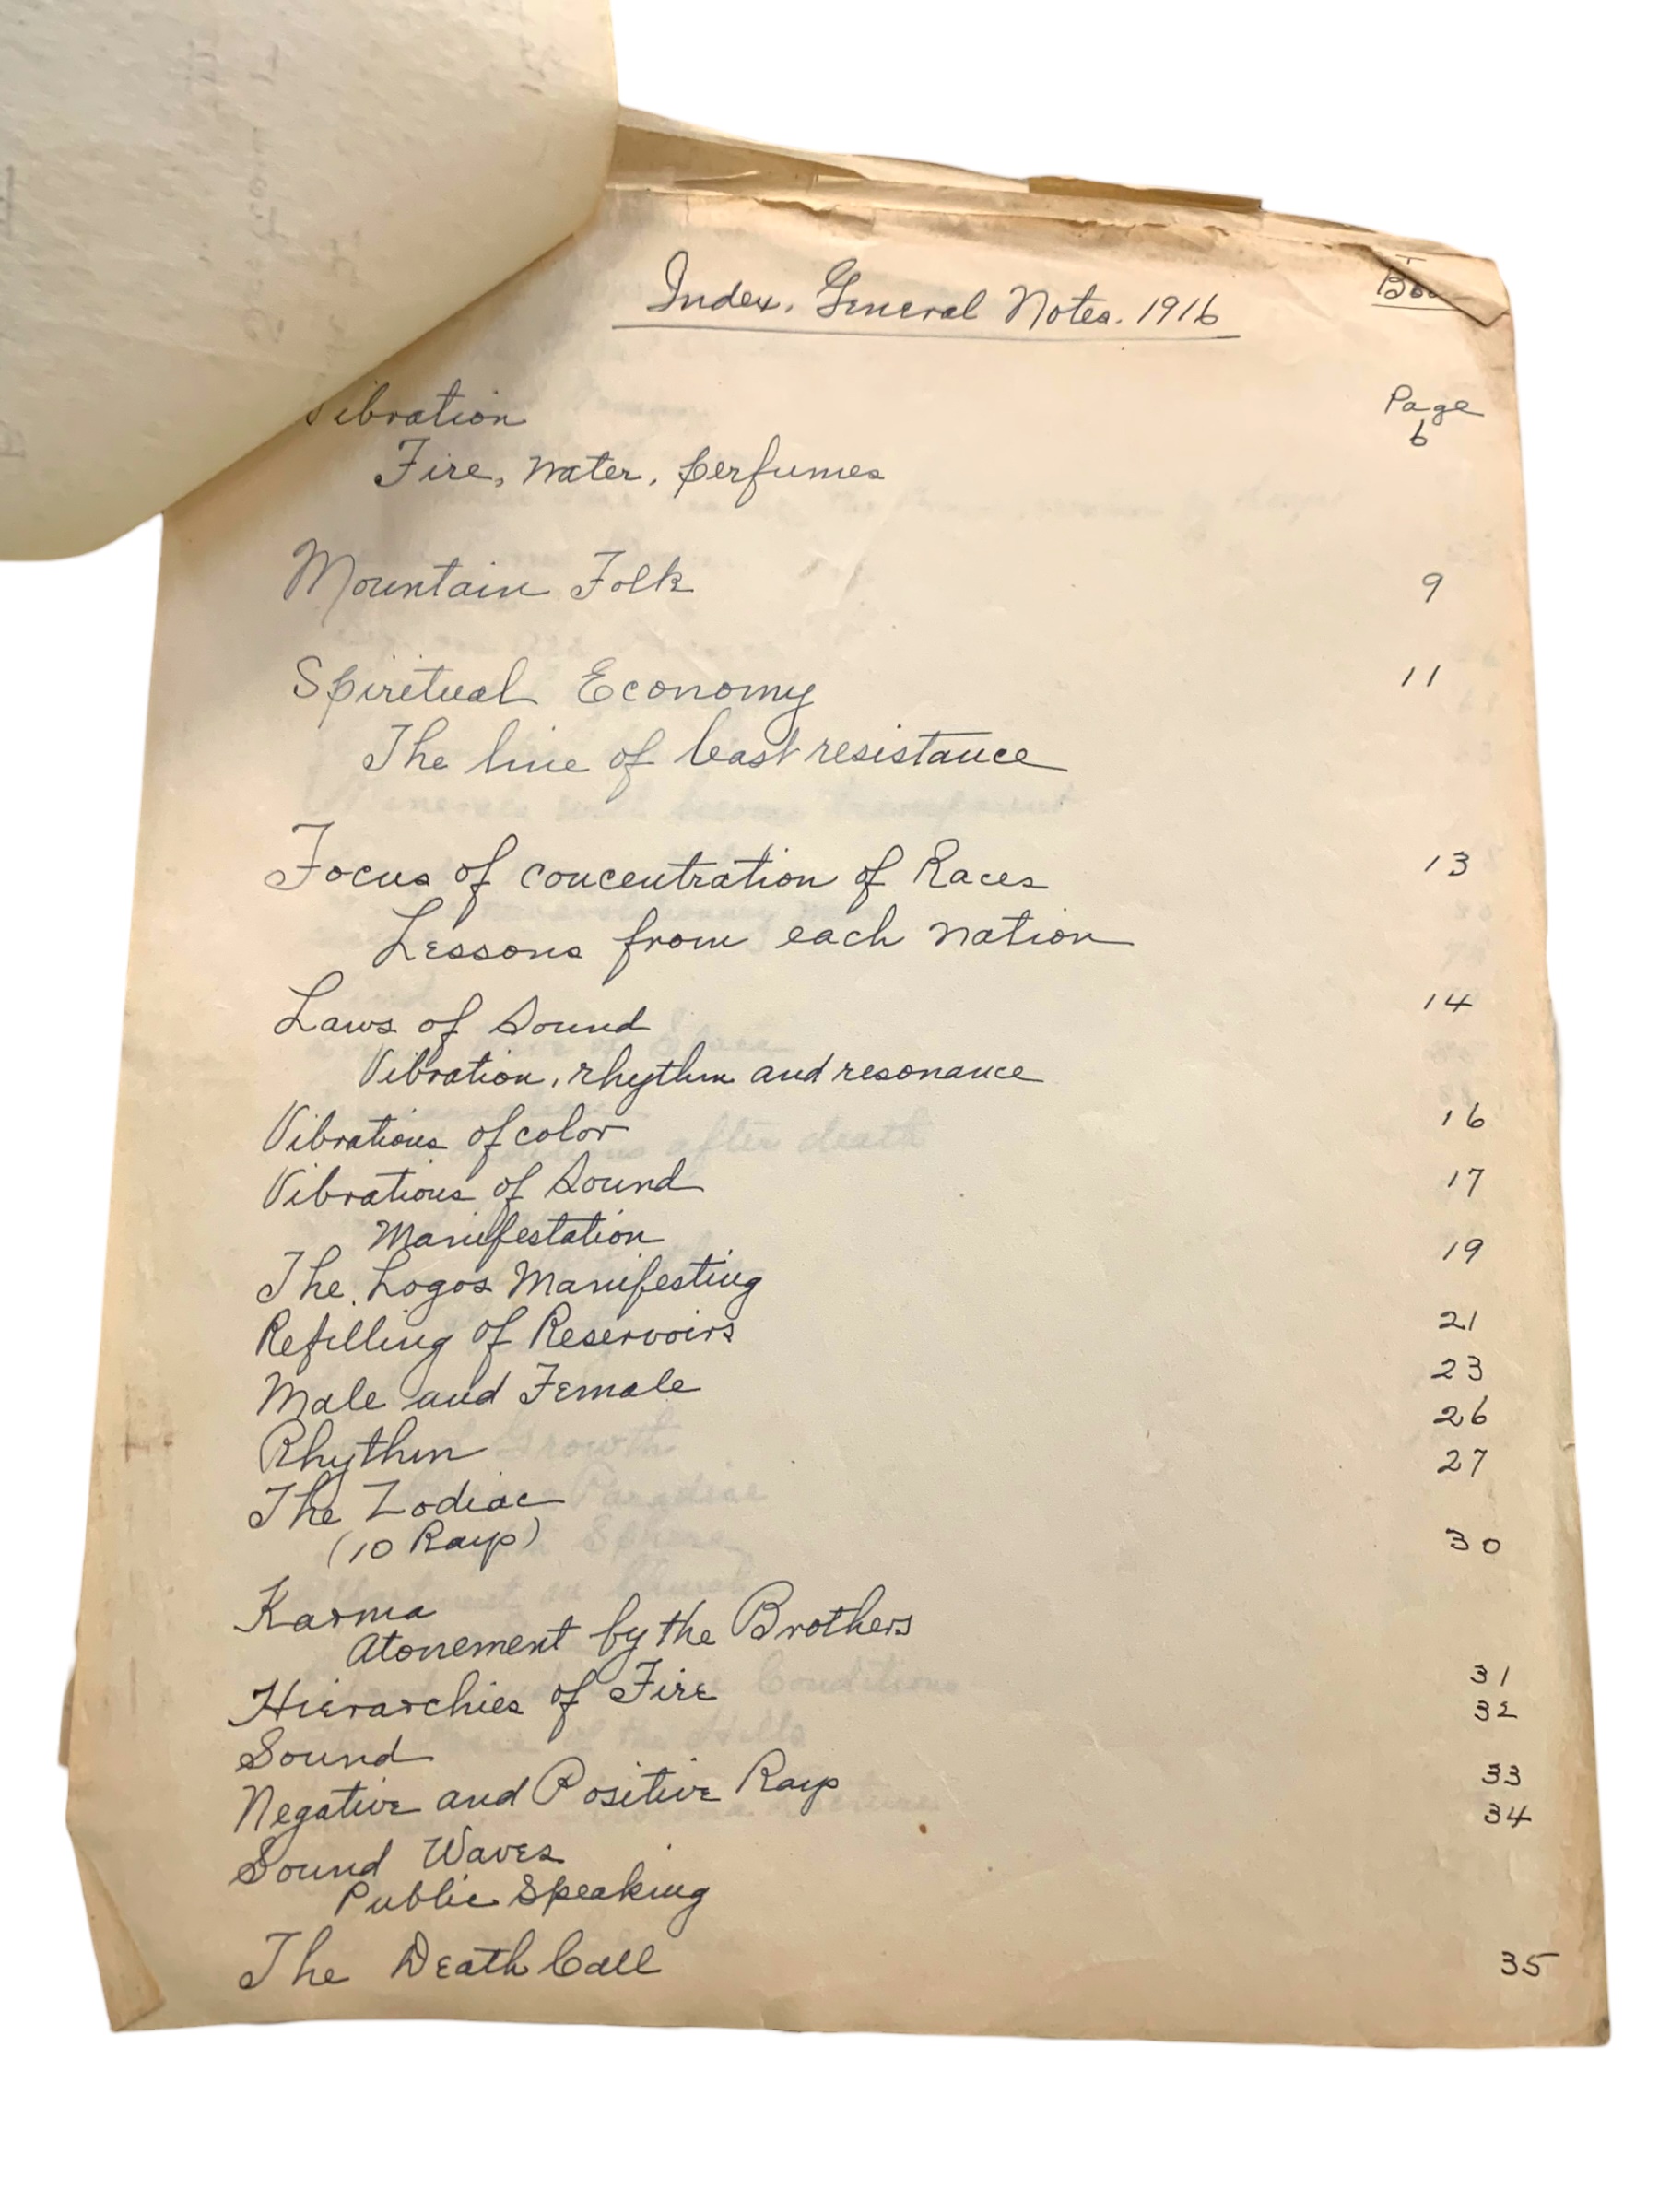 Index. General Notes. 1916
Page
Vibration 6
Fire, Water, perfumes
Mountain Folk 9
Spiritual Economy 11
The line of least resistance
Focus of concentration of Races 13
Lessons from each nation
Laws of Sound 14
Vibration, rhythm and resonance
Vibrations of color 16
Vibrations of Sound 17
Manifestation
The Logos Manifesting 19
Refilling of Reservoirs 21
Male and Female 23
Rhythm 26
The Zodiac 27
(10 Rays)
Karma 30
Atonement by the Brothers
Hierarchies of Fire 31
Sound 32
Negative and Positive Rays 33
Sound Waves 34
Public Speaking
The Death Call 35